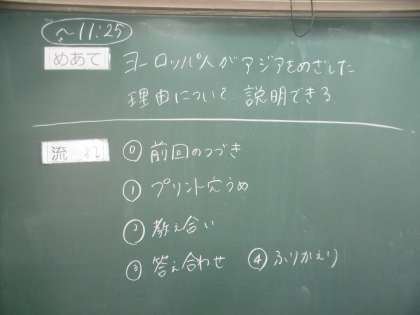 ~11:25
めあて ヨーロッパ人がアジアをめざした
理由について説明できる
流れ ⓪前回のつづき
①プリント穴うめ
②教え合い
③答え合わせ ④ふりかえり